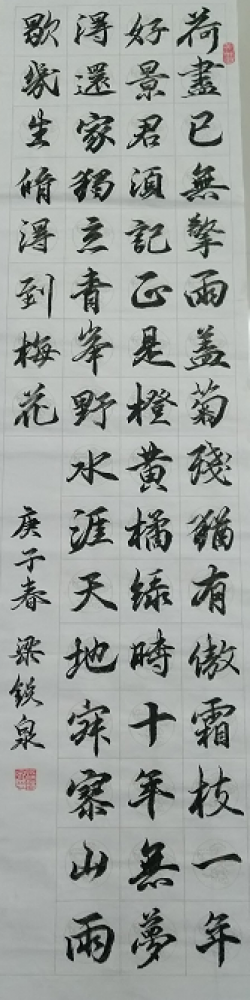 荷盡已無擎雨盖菊殘猶有傲霜枝一年
好景君須記正是橙黄橘緑時十年無夢
得還家獨立青峯野水涯天地寂寥山雨
歇幾生脩得到梅花
庚子春 梁鋭泉